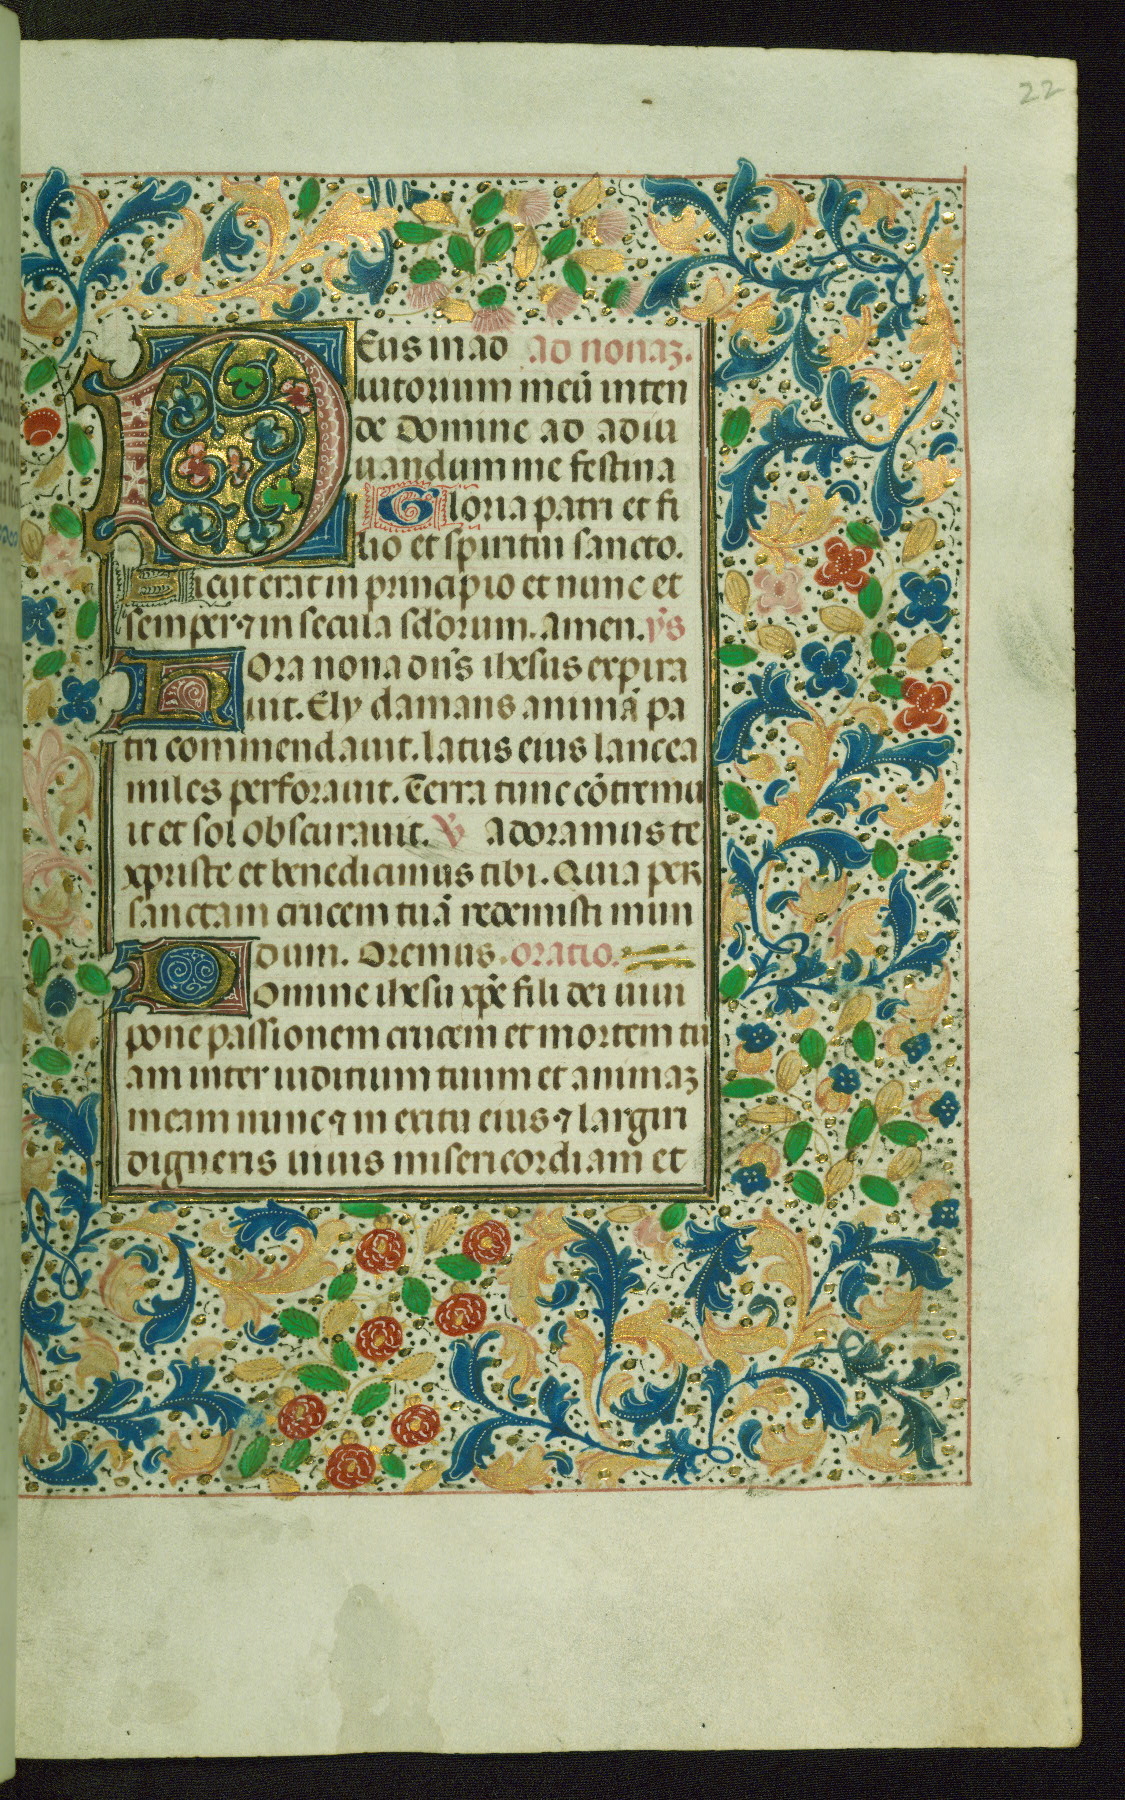 22
Deus in ad ad nonaꝫ.
iutorium meū inten
de Domine ad adiu
uandum me festina
Gloria patri et fi
lio et spiritui sancto.
Sicut erat in principio et nunc et
semper ⁊ in secula sc̄lorum. Amen. ẏs
Hora nona dn̄s ihesus expira
uit. Ely clamans animā pa
tri commendauit. latus eius lancea
miles perforauit. Terra tunc cōtremu
it et sol obscurauit. ℣ adoramus te
xpriste et benedicimus tibi. Quia per
sanctam crucem tuā redemisti mun
dum. Oremus. oratio.
Domine ihesu xp̄e fili dei uiui
pone passionem crucem et mortem tu
am inter iuditium tuum et animaꝫ
meam nunc ⁊ in exitu eius ⁊ largiri
digneris uiuis misericordiam et